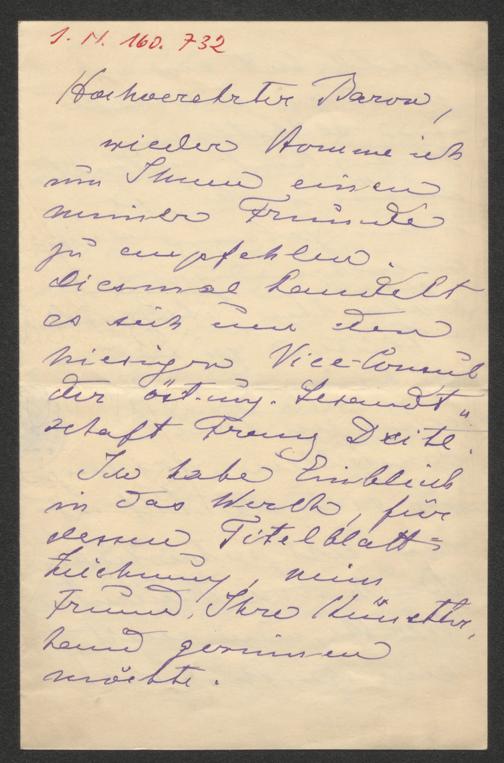 I. N. 160.732
Hochverehrter Baron,
wieder komme ich
um Ihnen einen
meiner Freunde
zu empfehlen.
Diesmal handelt
es sich um den
hiesigen Vice-Consul
der öst-ung. Gesandt"
schaft Franz
Ich habe Einblick
in das Werk, für
dessen Titelblatt=
zeichnung, mein
Freund, Ihre Künstler,
hand gewinnen
möchte.